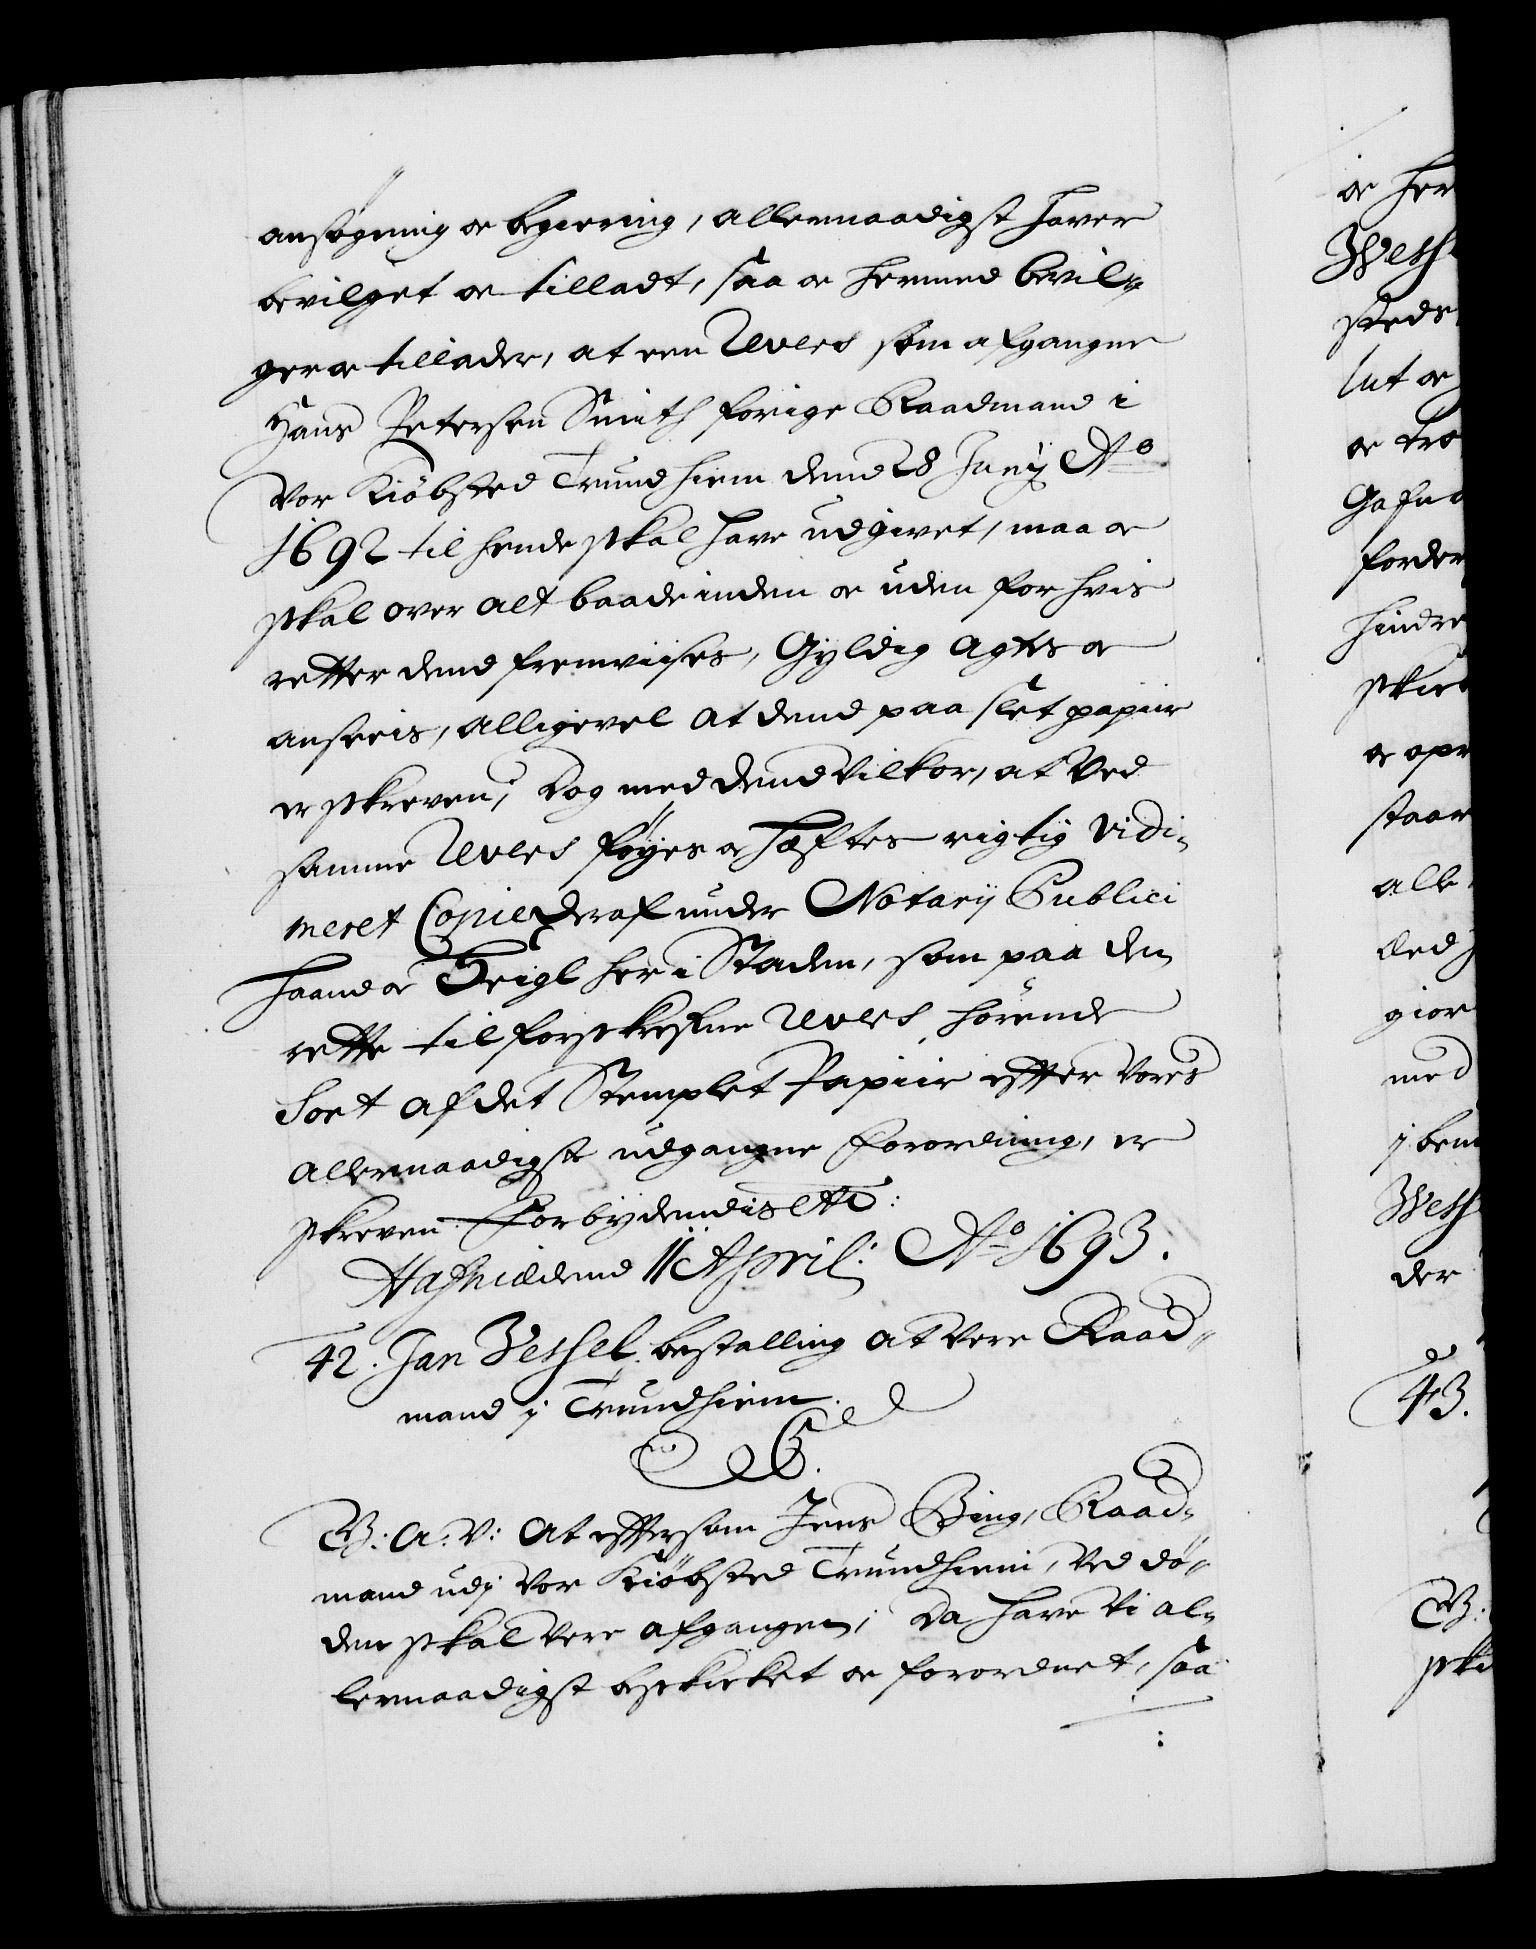 ansøgning oc begiering, allernaadigst hafver
bevilget oc tilladt, saa oc hermed bevil-
ger oc tillader, at een Revers som afgangne
Hans Petersen Smith forige Raadmand i
vor Kiöbsted Trundhiem dend 28 Junij Ao
1692 til hende skal hafve udgivet, maa oc
skal over alt baade inden oc uden for hvis
retter dend fremviises, Gyldig agtes oc
anseeis, alligevel at dend paa slet papiir
er skreven; Dog med dend vilkor, at ved
samme Revers føyes oc hæftes rigtig vidi-
meret Copie deraf under Notarij Publici
haand oc Seigl her i Staden, som paa den
rette til forskrefne Revers hørende
Sort af det Stemplet Papiir effter vores
allernaadigste udgangne forordning, er
skreven. Forbydendis etc:
Hafniæ dend 11 April: Ao 1693.
42. Jan Wessel bestalling at vere Raad-
mand i Trundhiem.
C 5.
G: A: V: At efftersom Jens Bing, Raad-
mand udj vor Kiöbsted Trundhiem, ved dö-
den skal vere afgangen; Da hafve vi al-
lernaadigst beskicket oc forordnet, saa
oc her
Wess
steds
lut oc
oc tro
Gafn
forder
hindre
skie
oc opr
staar
alle
led
giør
med
j bem
Wess
der
43.
G:
ski